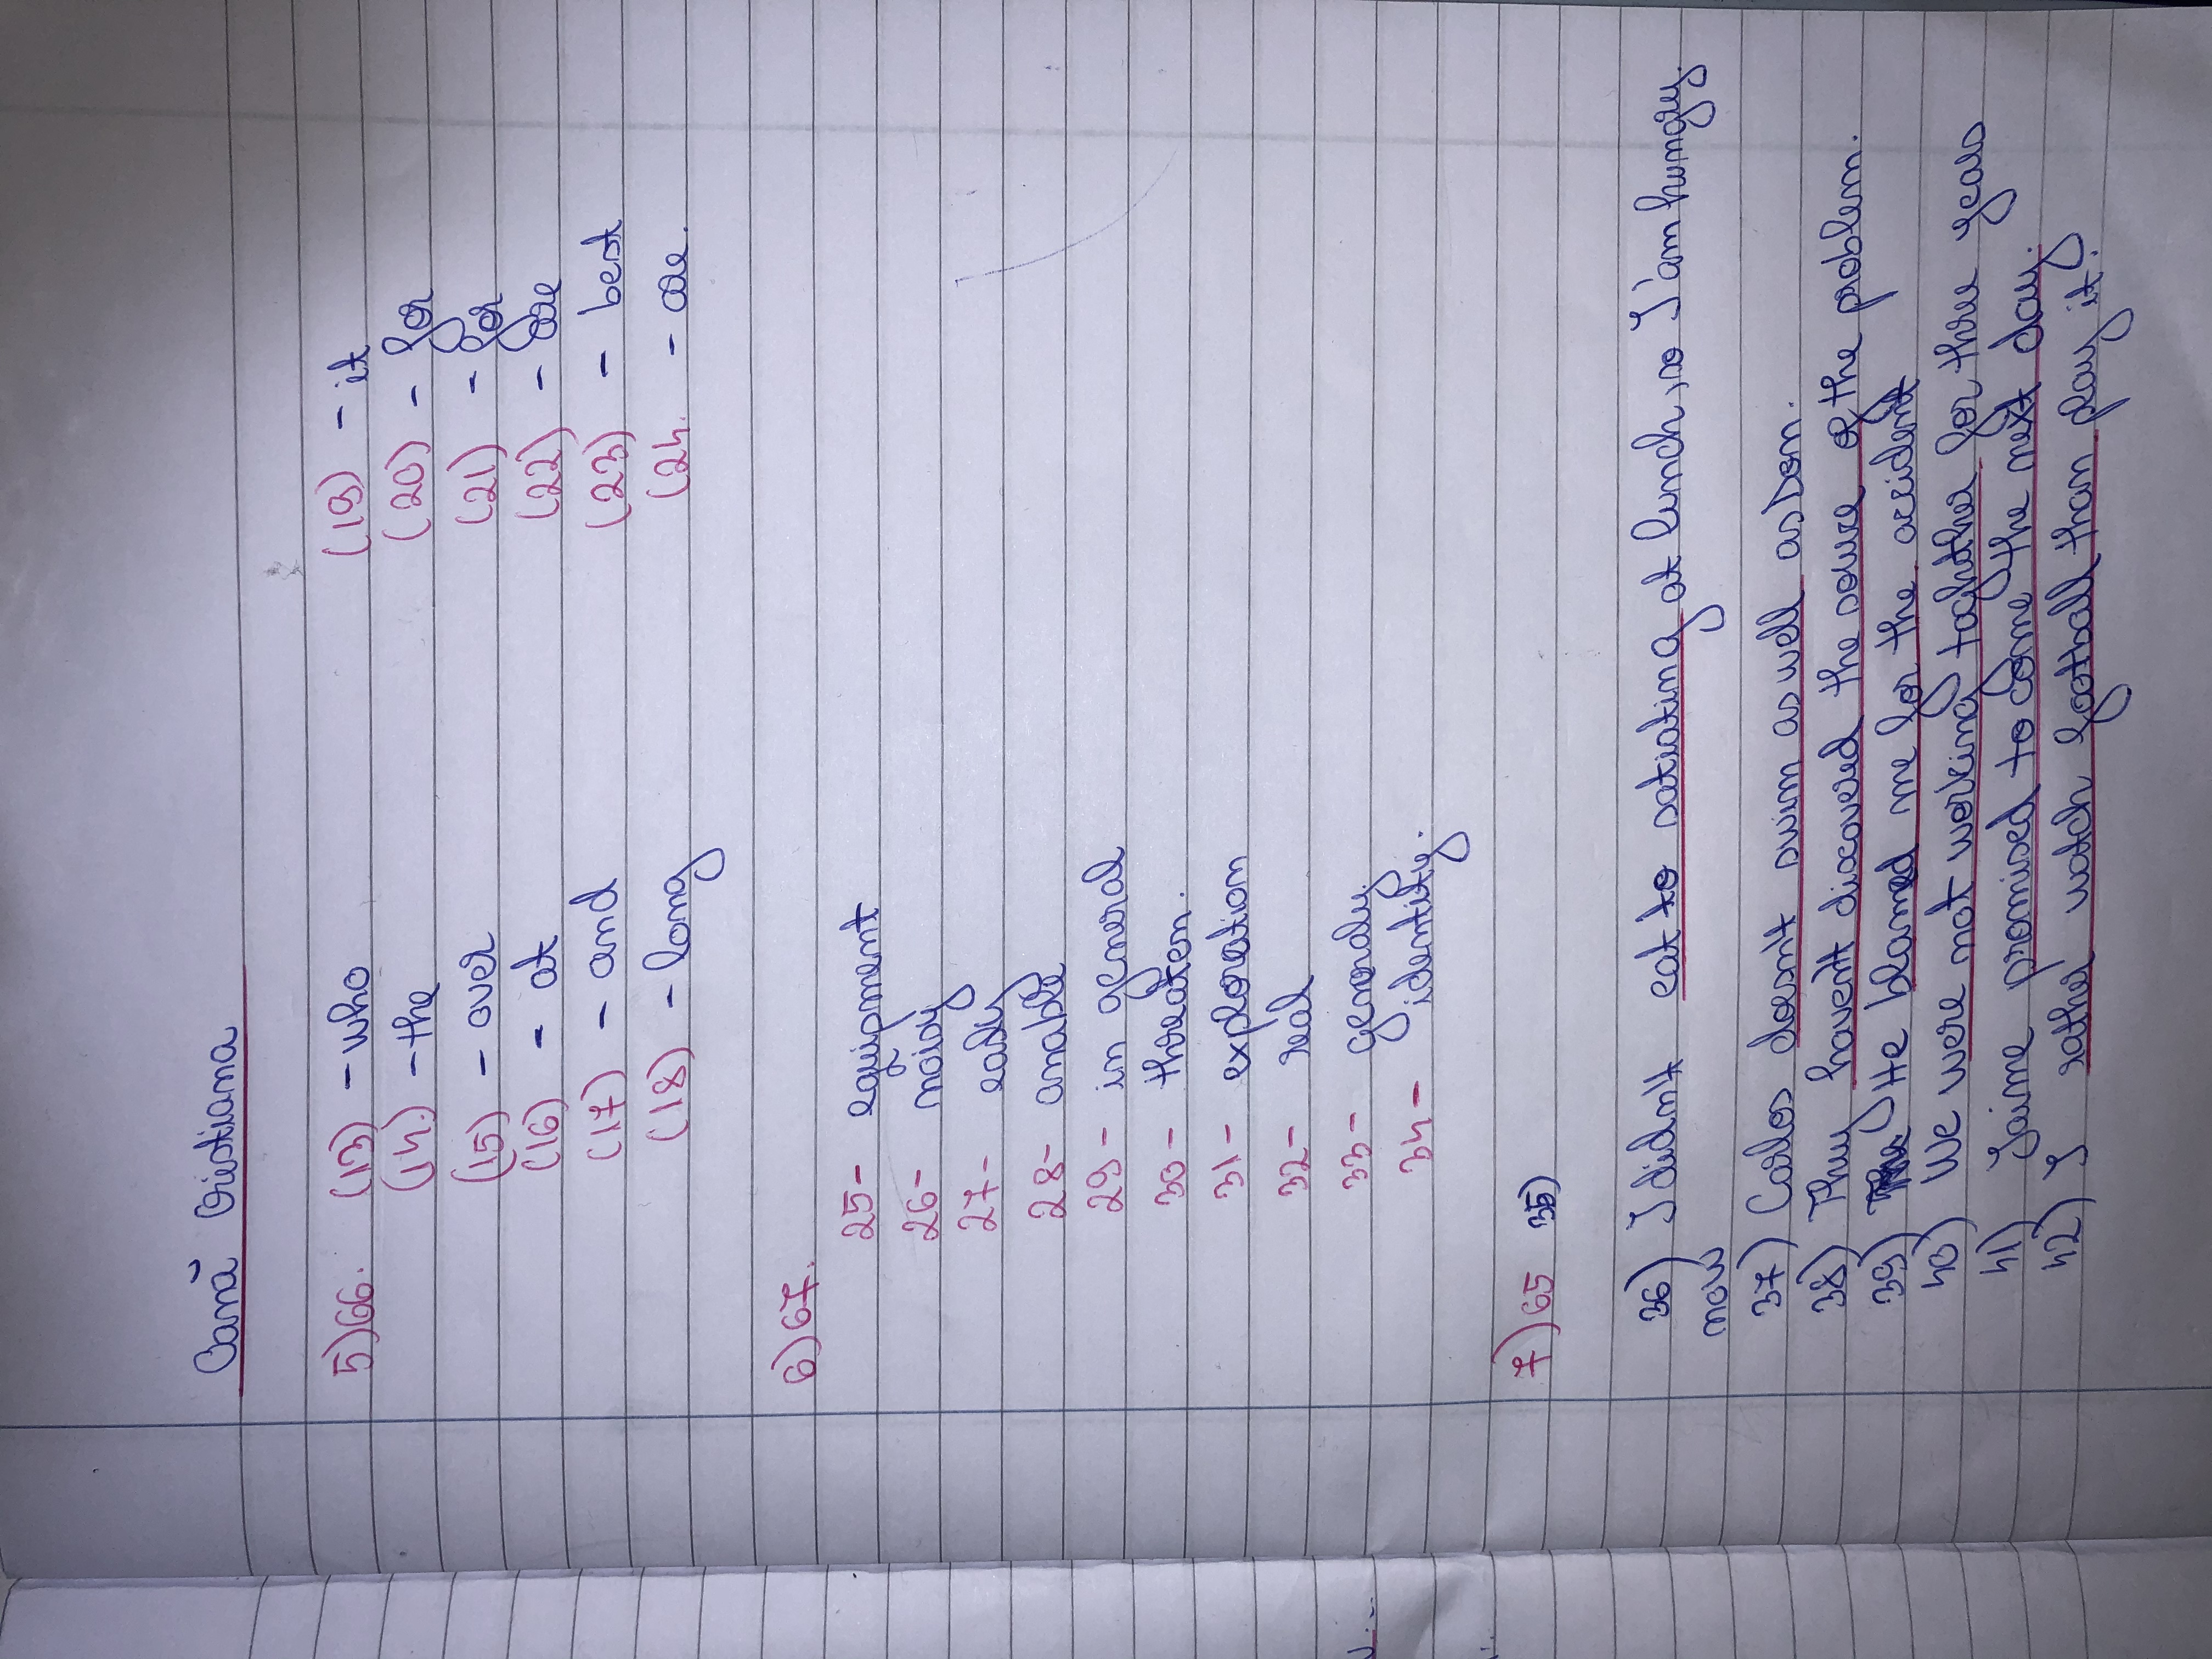 Oană Cristiana
5) 66. (13) - who (19) - it
(14) - the (20) - for
(15) - over (21) - for
(16) - at (22) - are
(17) - and (23) - best
(18) - long (24. - are.
6) 67.
25- equipment
26- noisy
27- easly
28- anable
29- in general
30- threatem.
31- exploration
32- real
33- generaly
34- identity.
7) 65 35)
36) I didn't eat to satiating at lunch, so I'am hungry
now
37) Carlos doesn't swim as well as Dan.
38) They haven't discovered the sourse of the problem.
39) He blamed me for the accident
40) We were not working togheter for three years
41) Jaime promised to come the next day.
42) I rather watch football than play it.